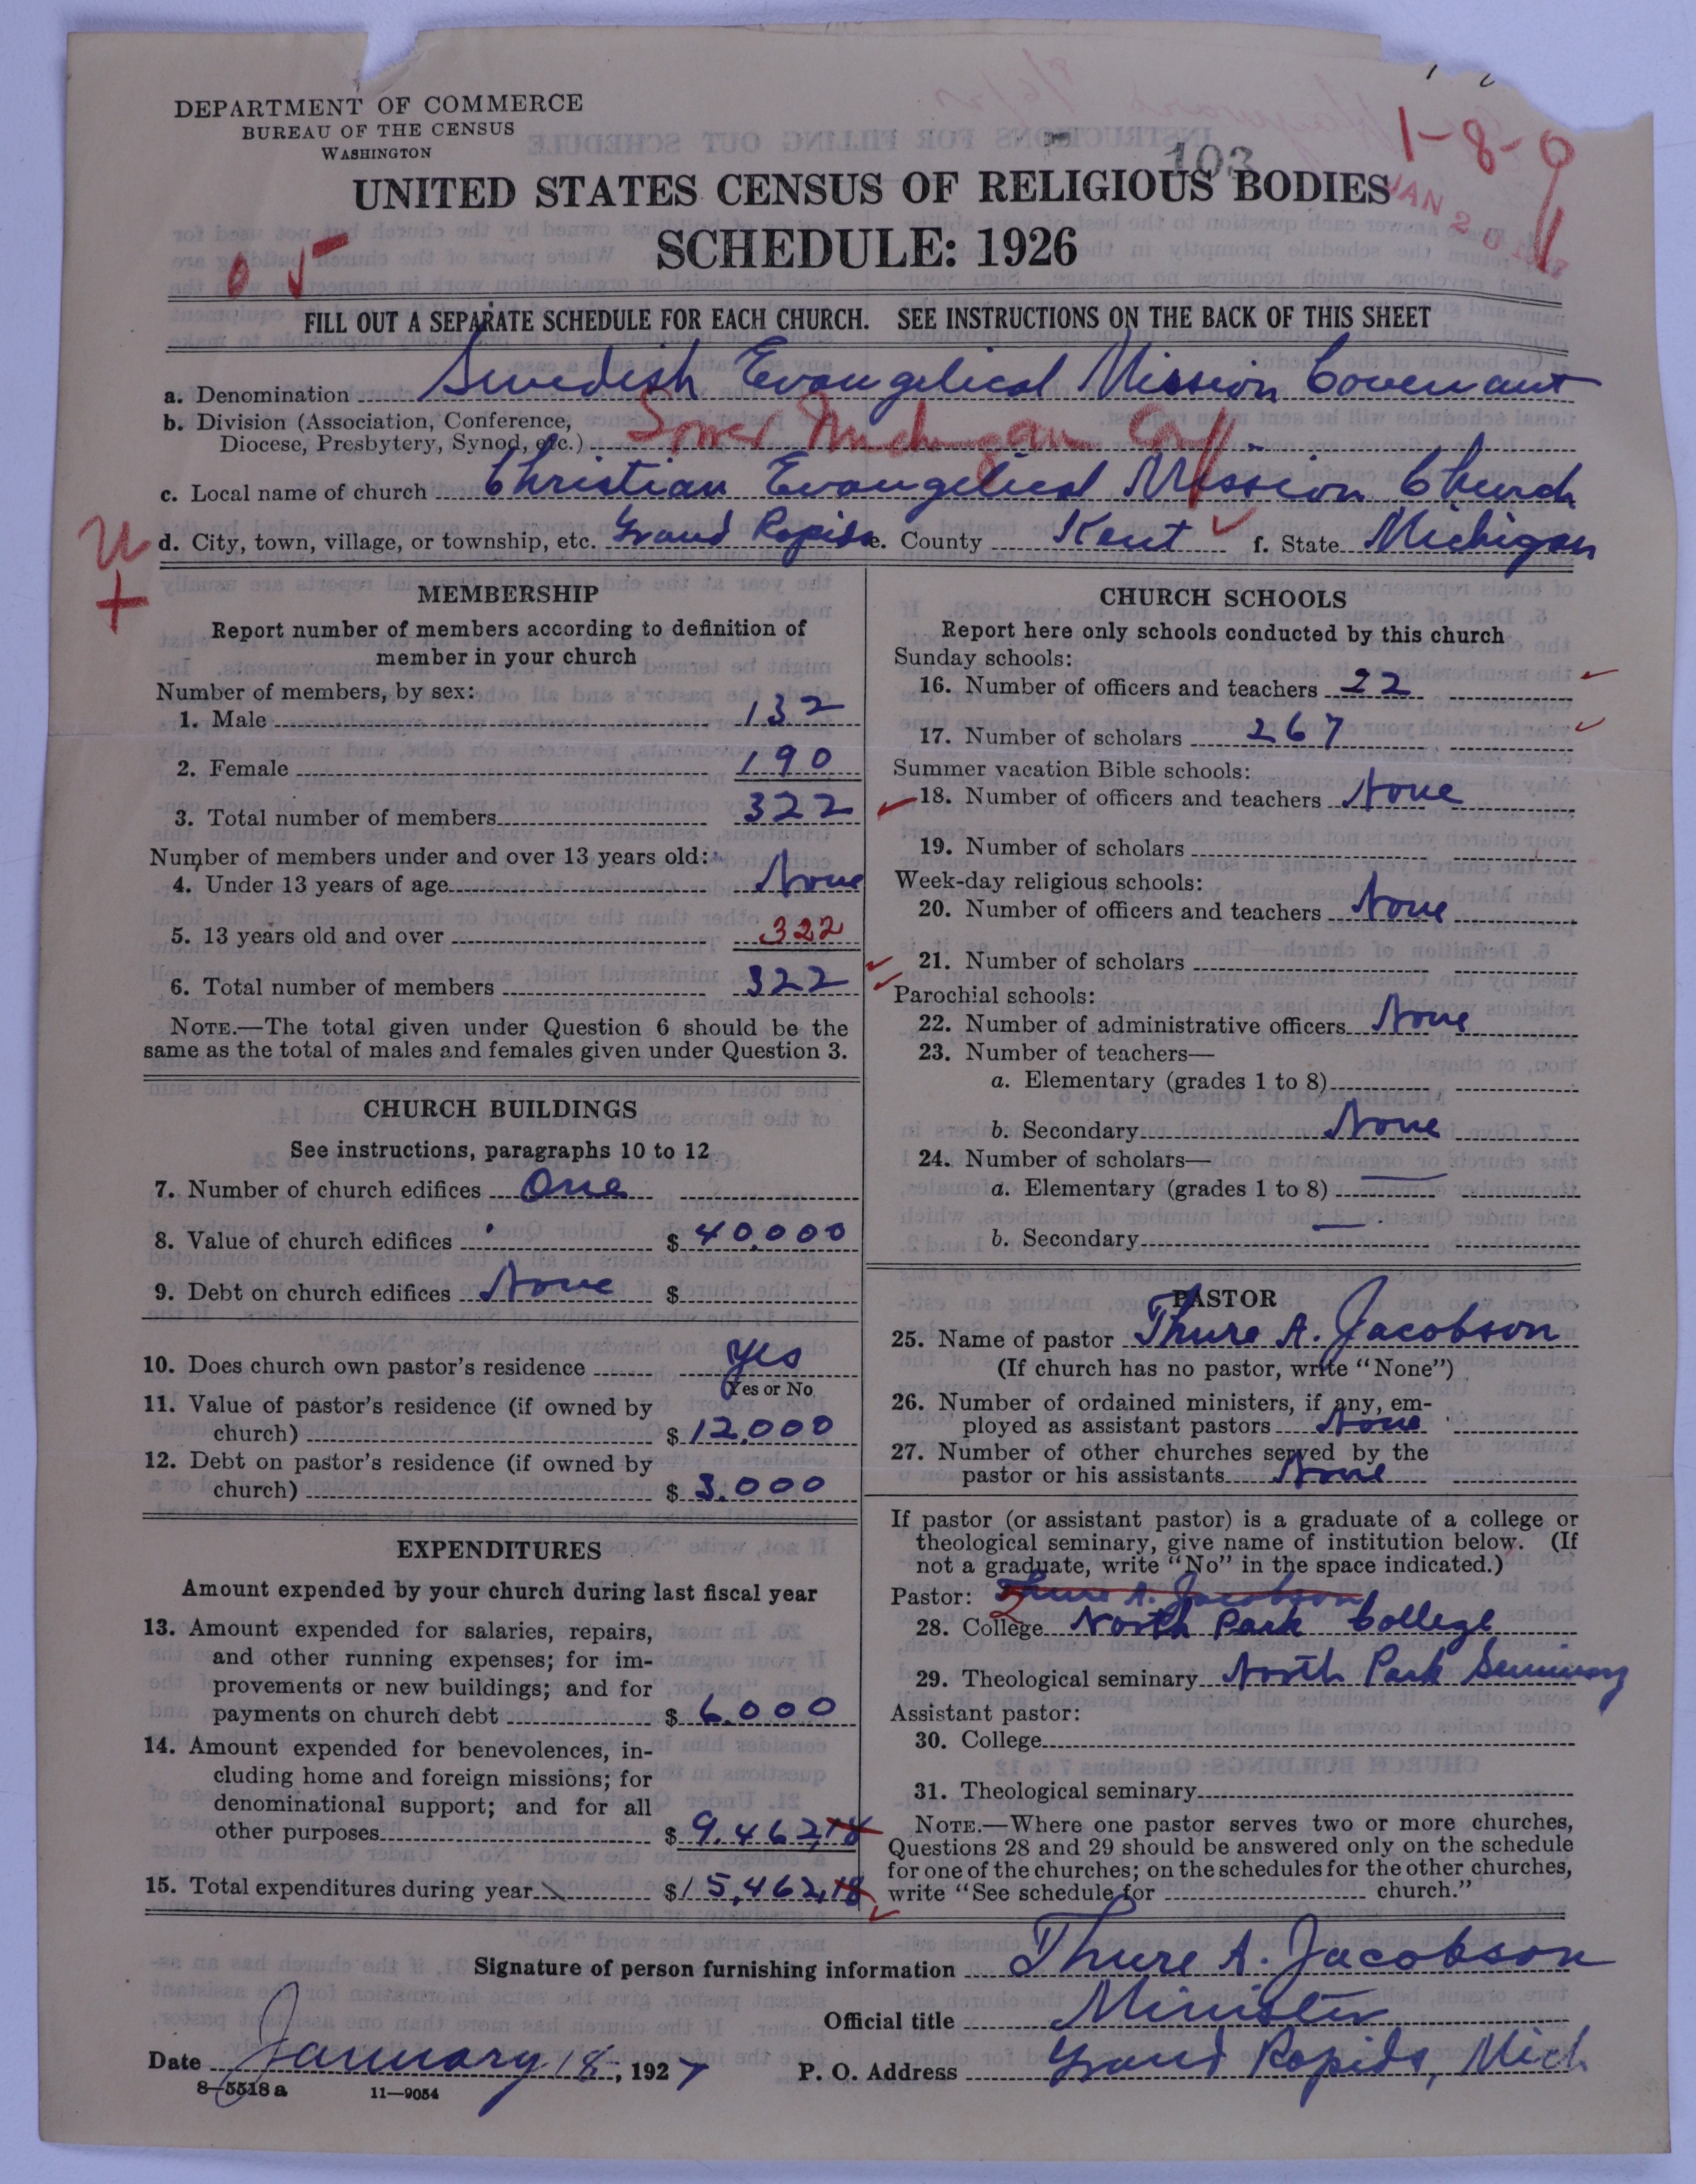 DEPARTMENT OF COMMERCE
BUREAU OF THE CENSUS
WASHINGTON
103
1-8-0
JAN 20 1927
UNITED STATES CENSUS OF RELIGIOUS BODIES
SCHEDULE: 1926
0 5
FILL OUT A SEPARATE SCHEDULE FOR EACH CHURCH. SEE INSTRUCTIONS ON THE BACK OF THIS SHEET
a. Denomination Swedish Evangelical Mission Covenant
b. Division (Association, Conference,
Diocese, Presbytery, Synod, etc.) Michigan Conf.
c. Local name of church Christian Evangelical Mission Church
d. City, town, village, or township, etc. Grand Rapids e. County Kent f. State Michigan
U
+
MEMBERSHIP
Report number of members according to definition of
member in your church
Number of members, by sex:
1. Male 132
2. Female 190
3. Total number of members 322
Number of members under and over 13 years old:
4. Under 13 years of age None
5. 13 years old and over 322
6. Total number of members 322
NOTE.—The total given under Question 6 should be the
same as the total of males and females given under Question 3.
CHURCH BUILDINGS
See instructions, paragraphs 10 to 12
7. Number of church edifices One
8. Value of church edifices $ 40,000
9. Debt on church edifices None $
10. Does church own pastor's residence Yes
Yes or No
11. Value of pastor's residence (if owned by
church) $ 12,000
12. Debt on pastor's residence (if owned by
church) $ 3,000
EXPENDITURES
Amount expended by your church during last fiscal year
13. Amount expended for salaries, repairs,
and other running expenses; for im-
provements or new buildings; and for
payments on church debt $ 6,000
14. Amount expended for benevolences, in-
cluding home and foreign missions; for
denominational support; and for all
other purposes $ 9,462,18
15. Total expenditures during year $ 15,462,18
CHURCH SCHOOLS
Report here only schools conducted by this church
Sunday schools:
16. Number of officers and teachers 22
17. Number of scholars 267
Summer vacation Bible schools:
18. Number of officers and teachers None
19. Number of scholars
Week-day religious schools:
20. Number of officers and teachers None
21. Number of scholars
Parochial schools:
22. Number of administrative officers None
23. Number of teachers—
a. Elementary (grades 1 to 8)
b. Secondary None
24. Number of scholars—
a. Elementary (grades 1 to 8) —
b. Secondary —
PASTOR
25. Name of pastor Thure A. Jacobson
(If church has no pastor, write "None")
26. Number of ordained ministers, if any, em-
ployed as assistant pastors None
27. Number of other churches served by the
pastor or his assistants None
If pastor (or assistant pastor) is a graduate of a college or
theological seminary, give name of institution below. (If
not a graduate, write "No" in the space indicated.)
Pastor: Thure A. Jacobson
28. College North Park College
29. Theological seminary North Park Seminary
Assistant pastor:
30. College
31. Theological seminary
NOTE.—Where one pastor serves two or more churches,
Questions 28 and 29 should be answered only on the schedule
for one of the churches; on the schedules for the other churches,
write "See schedule for church."
Signature of person furnishing information Thure A. Jacobson
Official title Minister
Date January 18, 1927 P. O. Address Grand Rapids, Mich
8-5518 a 11—9054